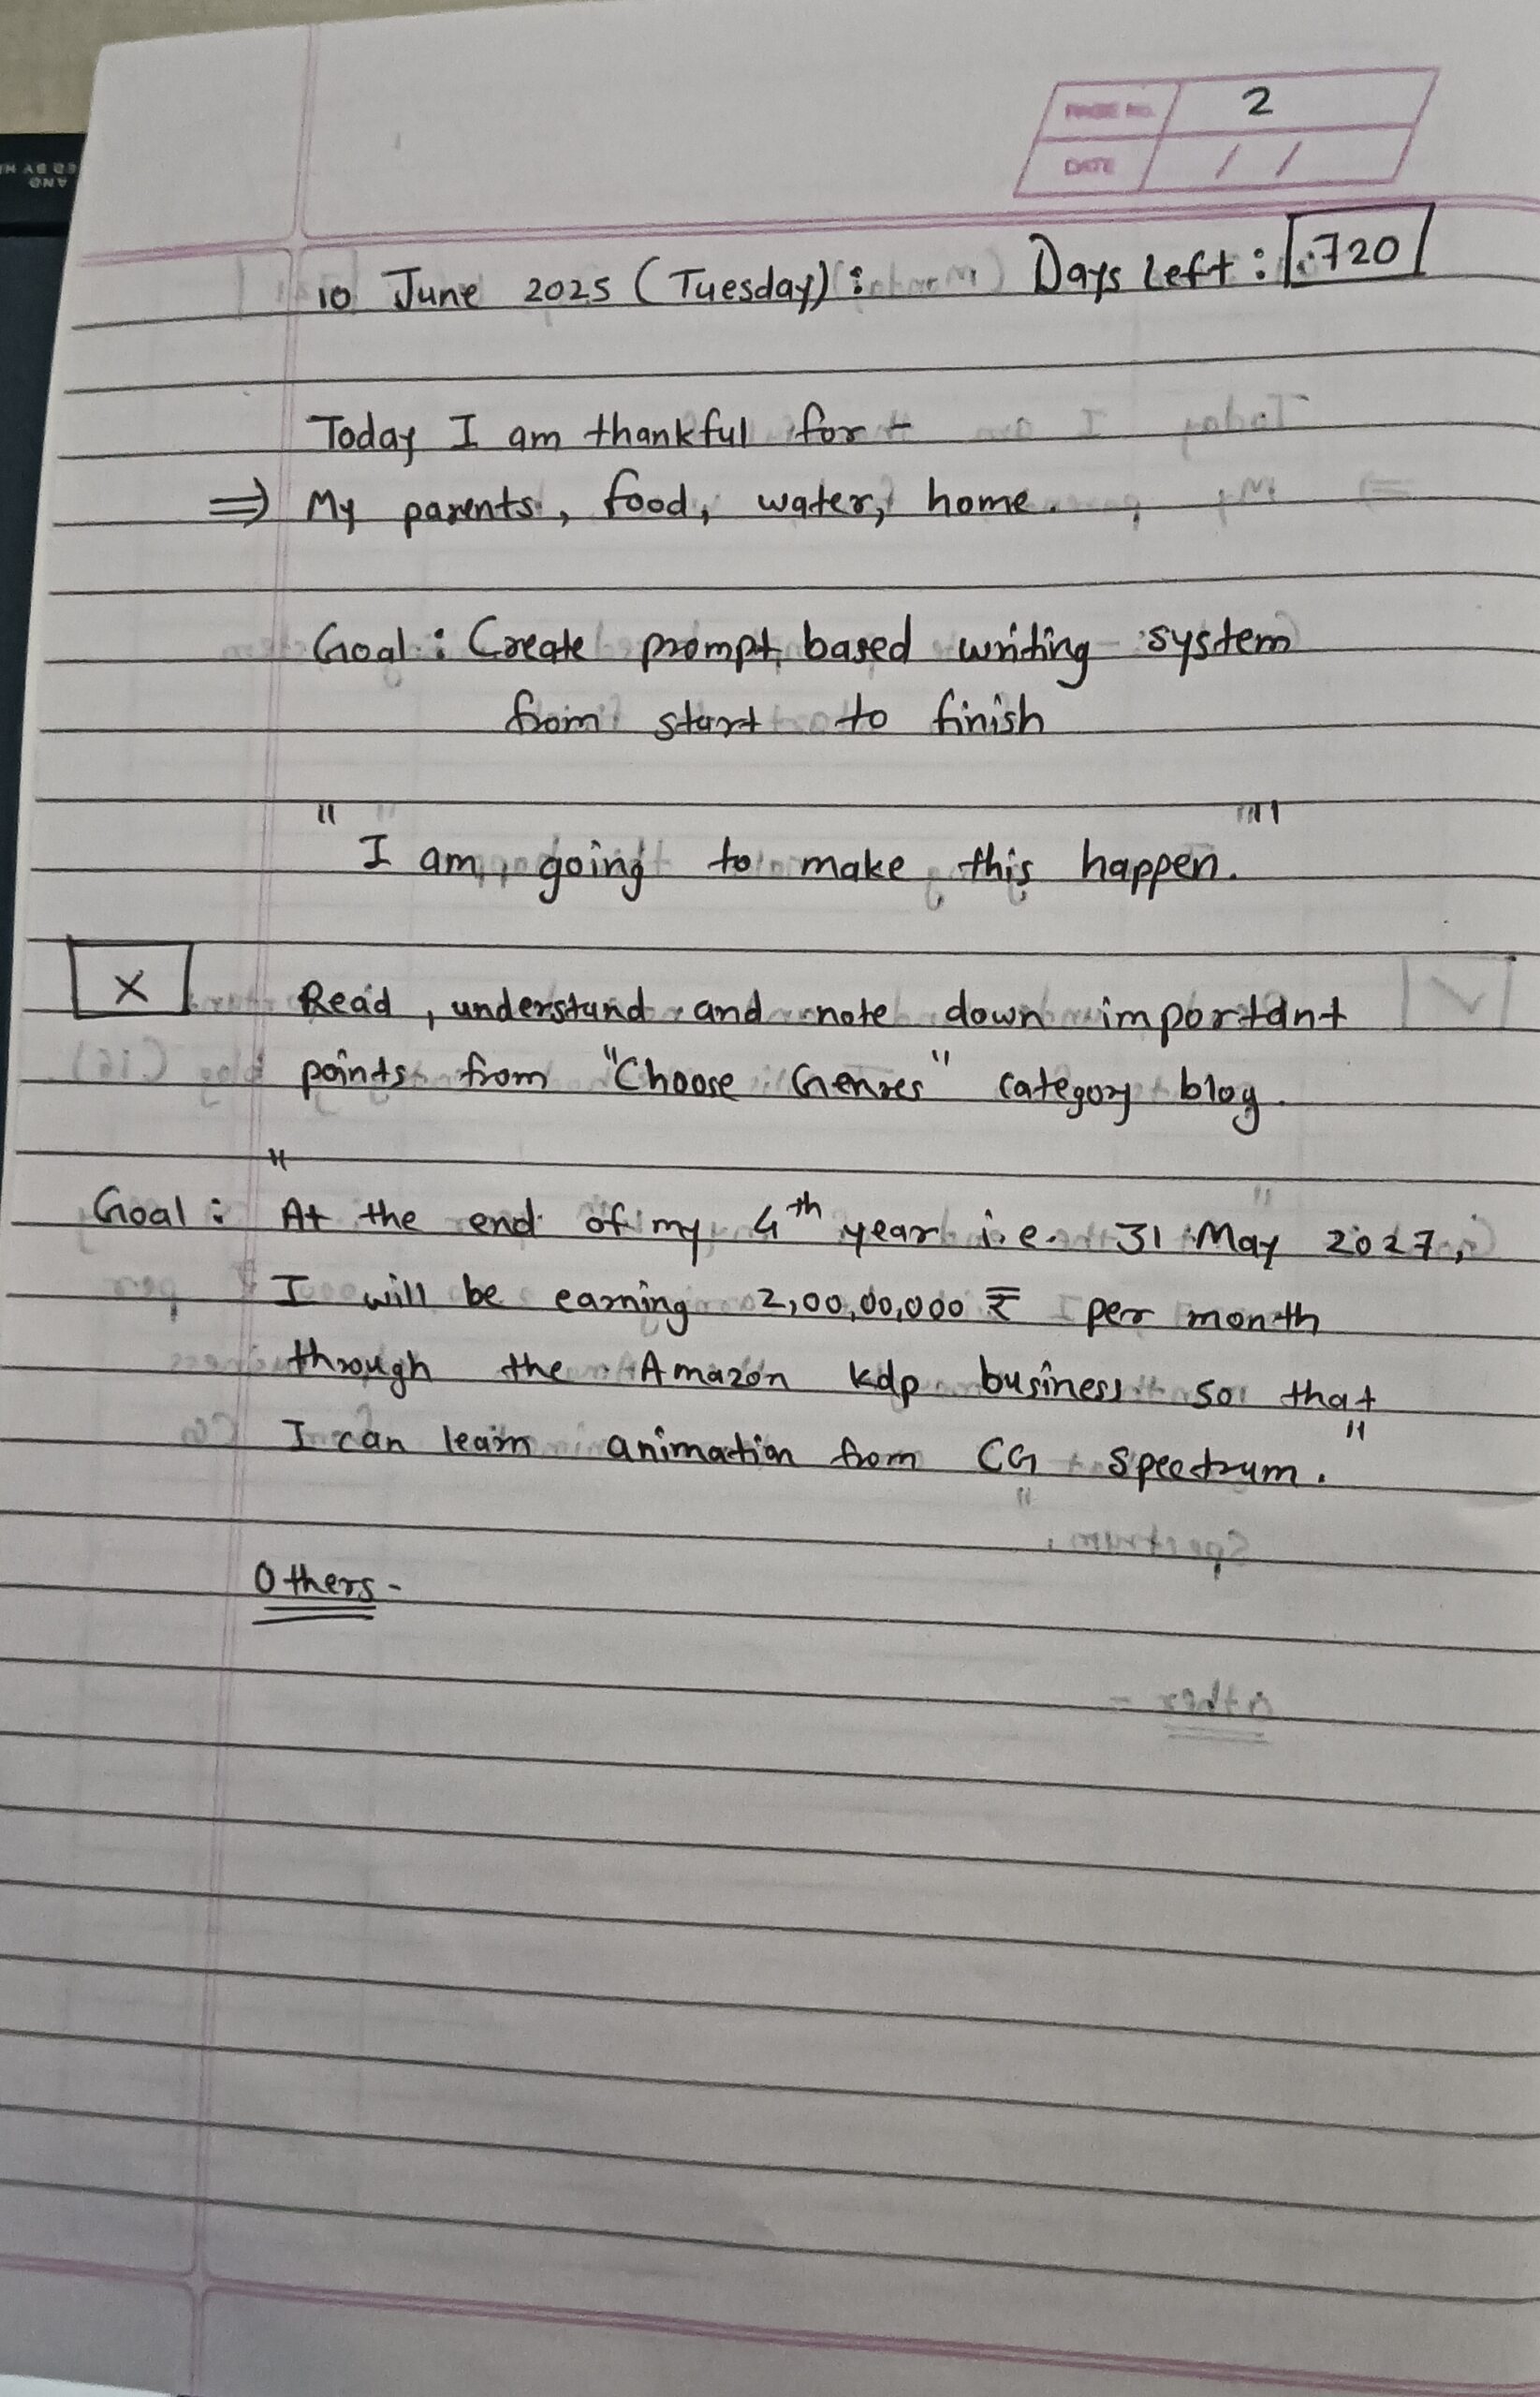 PAGE NO. 2
DATE / /
10 June 2025 (Tuesday): Days Left: 720
Today I am thankful for -
⇒ My parents, food, water, home.
Goal: Create prompt based writing system
from start to finish
"I am going to make this happen."
X Read, understand and note down important
points from "Choose Genres" category blog.
Goal: "At the end of my 4th year i.e. 31 May 2027,
I will be earning 2,00,00,000 ₹ per month
through the Amazon kdp business so that
I can learn animation from CG Spectrum."
Others-